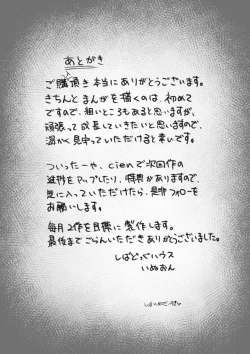 あとがき
ご購頂き本当にありがとうございます。
きちんとまんがを描くのは、初めて
ですので、粗いところもあると思いますが、
頑張って成長していきたいと思いますので、
温かく見守っていただけると幸いです。
ついったーや、cienで次回作の
進捗をアップしたり、特典がありますので、
気に入っていただけたら、是非フォローを
お願いします。
毎月2作を目標に製作します。
最後までごらんいただきありがとうございました。
しばどっぐハウス
いぬおん